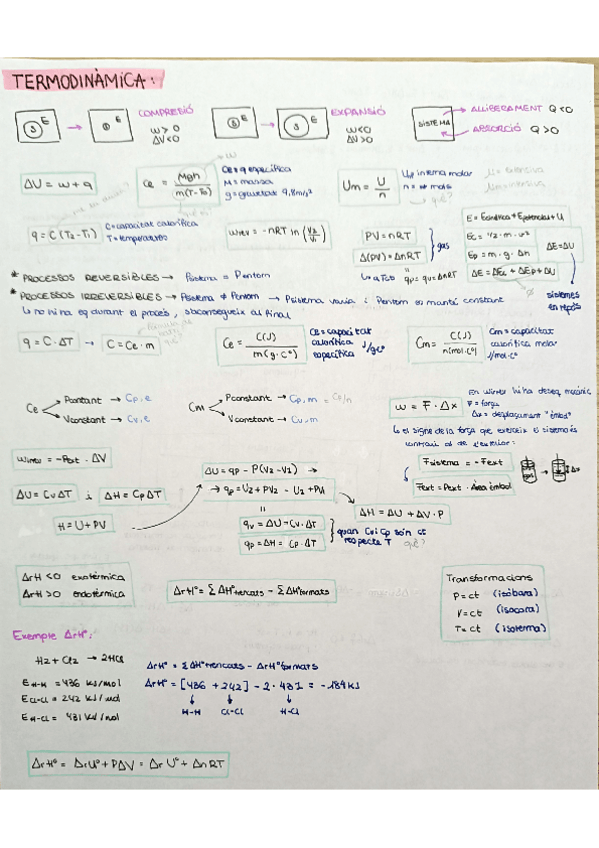 TERMODINÀMICA:
S E → S E COMPRESIÓ
W > 0
ΔV<0
S E → S E EXPANSIÓ
W<0
ΔV>0
SISTEMA
ALLIBERAMENT Q<0
ABSORCIÓ Q>0
ΔU = W + q
Ce = Mgh / m(T-T0)
Ce = q específica
M = massa
g = gravetat 9,8m/s²
Um = U/n
Um interna molar
n = nº mols
què?
q = C(T2-T1)
C = capacitat calorífica
T = temperatures
Wrev = -nRT ln (V2/V1)
PV = nRT
Δ(PV) = ΔnRT
gas
E = Ecinètica + Epotencial + U
Ec = 1/2 · m · v²
Ep = m · g · Δh
ΔE = ΔEc + ΔEp + ΔU
ΔE = ΔU
sistemes en repòs
* PROCESSOS REVERSIBLES → Psistema = Pentorn
* PROCESSOS IRREVERSIBLES → Psistema ≠ Pentorn → Psistema varia i Pentorn es manté constant
↳ no hi ha eq durant el procés, s'aconsegueix al final
q = C · ΔT → C = Ce · m
Ce = C(J) / m(g·Cº)
Ce = capacitat calorífica específica J/gCº
Cm = C(J) / n(mol·Cº)
Cm = capacitat calorífica molar J/mol·Cº
Ce
Pconstant → Cp,e
Vconstant → Cv,e
Cm
Pconstant → Cp,m = Ce/n
Vconstant → Cv,m
W = F · Δx
En Wirrev hi ha deseq. mecànic
F = força
Δx = desplaçament "èmbol"
↳ el signe de la força que exerceix el sistema és contrari al de l'exterior:
Fsistema = - Fext
Fext = Pext · Àrea èmbol
Δx
Wirrev = -Pext · ΔV
ΔU = CvΔT i ΔH = CpΔT
H = U + PV
ΔU = qp - P(V2-V1) →
→ qp = U2 + PV2 - U1 + PV1
ΔH = ΔU + ΔV · P
qv = ΔU = Cv · ΔT
qp = ΔH = Cp · ΔT
quan Cv i Cp són ct respecte T
què?
ΔrH <0 exotèrmica
ΔrH >0 endotèrmica
ΔrHº = ΣΔHºtrencats - ΣΔHºformats
Transformacions
P = ct (isòbara)
V = ct (isocora)
T = ct (isoterma)
Exemple ΔrHº:
H2 + Cl2 → 2HCl
EH-H = 436 kJ/mol
ECl-Cl = 242 kJ/mol
EH-Cl = 431 kJ/mol
ΔrHº = ΣΔHºtrencats - ΔrHºformats
ΔrHº = [436 + 242] - 2 · 431 = -184 kJ
H-H Cl-Cl H-Cl
ΔrHº = ΔrUº + PΔV = ΔrUº + ΔnRT